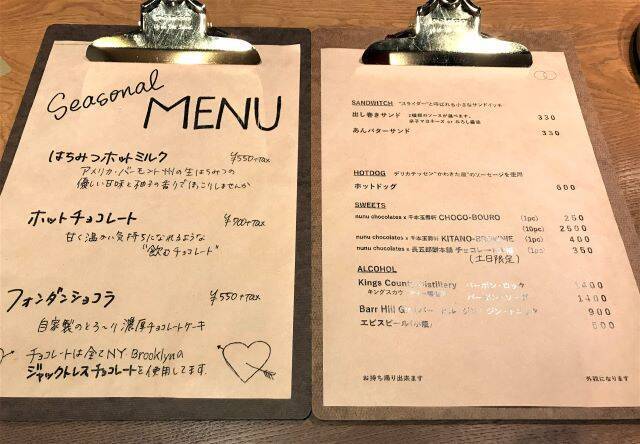 Seasonal
MENU
はちみつホットミルク ¥550+tax
アメリカ・バーモント州の生はちみつの
優しい甘味と柚子の香りでほっこりしませんか
ホットチョコレート ¥700+tax
甘く温かい気持ちになれるような
"飲むチョコレート"
フォンダンショコラ ¥550+tax
自家製のとろ〜り濃厚チョコレートケーキ
チョコレートは全てNY Brooklynの
ジャックトレスチョコレートを使用してます
SANDWITCH "スライダー"と呼ばれる小さなサンドイッチ
出し巻きサンド 2種類のソースが選べます。 330
辛子マヨネーズ or おろし醤油
あんバターサンド 330
HOTDOG デリカテッセン"かわきた屋"のソーセージを使用
ホットドッグ 600
SWEETS
nunu chocolates x 千本玉壽軒 CHOCO-BOURO (1pc) 250
(10pc) 2500
nunu chocolates x 千本玉壽軒 KITANO-BROWNIE (1pc) 400
nunu chocolates x 長五郎餅本舗 チョコレート大福 (1pc) 350
(土日限定)
ALCOHOL
Kings County Distillery バーボン・ロック 1400
キングスカウンティー バーボン・ソーダ 1400
Barr Hill Gin ジン・トニック 900
エビスビール(小瓶) 600
お持ち帰り出来ます 外税になります